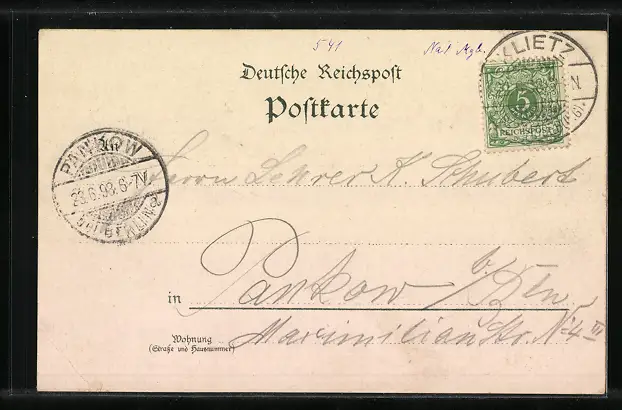 541
Deutsche Reichspost
Postkarte
KLIETZ
5
REICHSPOST
PANKOW
23.6.98.6-7V.
BERLIN
Herrn Lehrer K. Schubert
in Pankow b/Bln.
Wohnung
(Straße und Hausnummer)
Maximilianstr. № 4 III